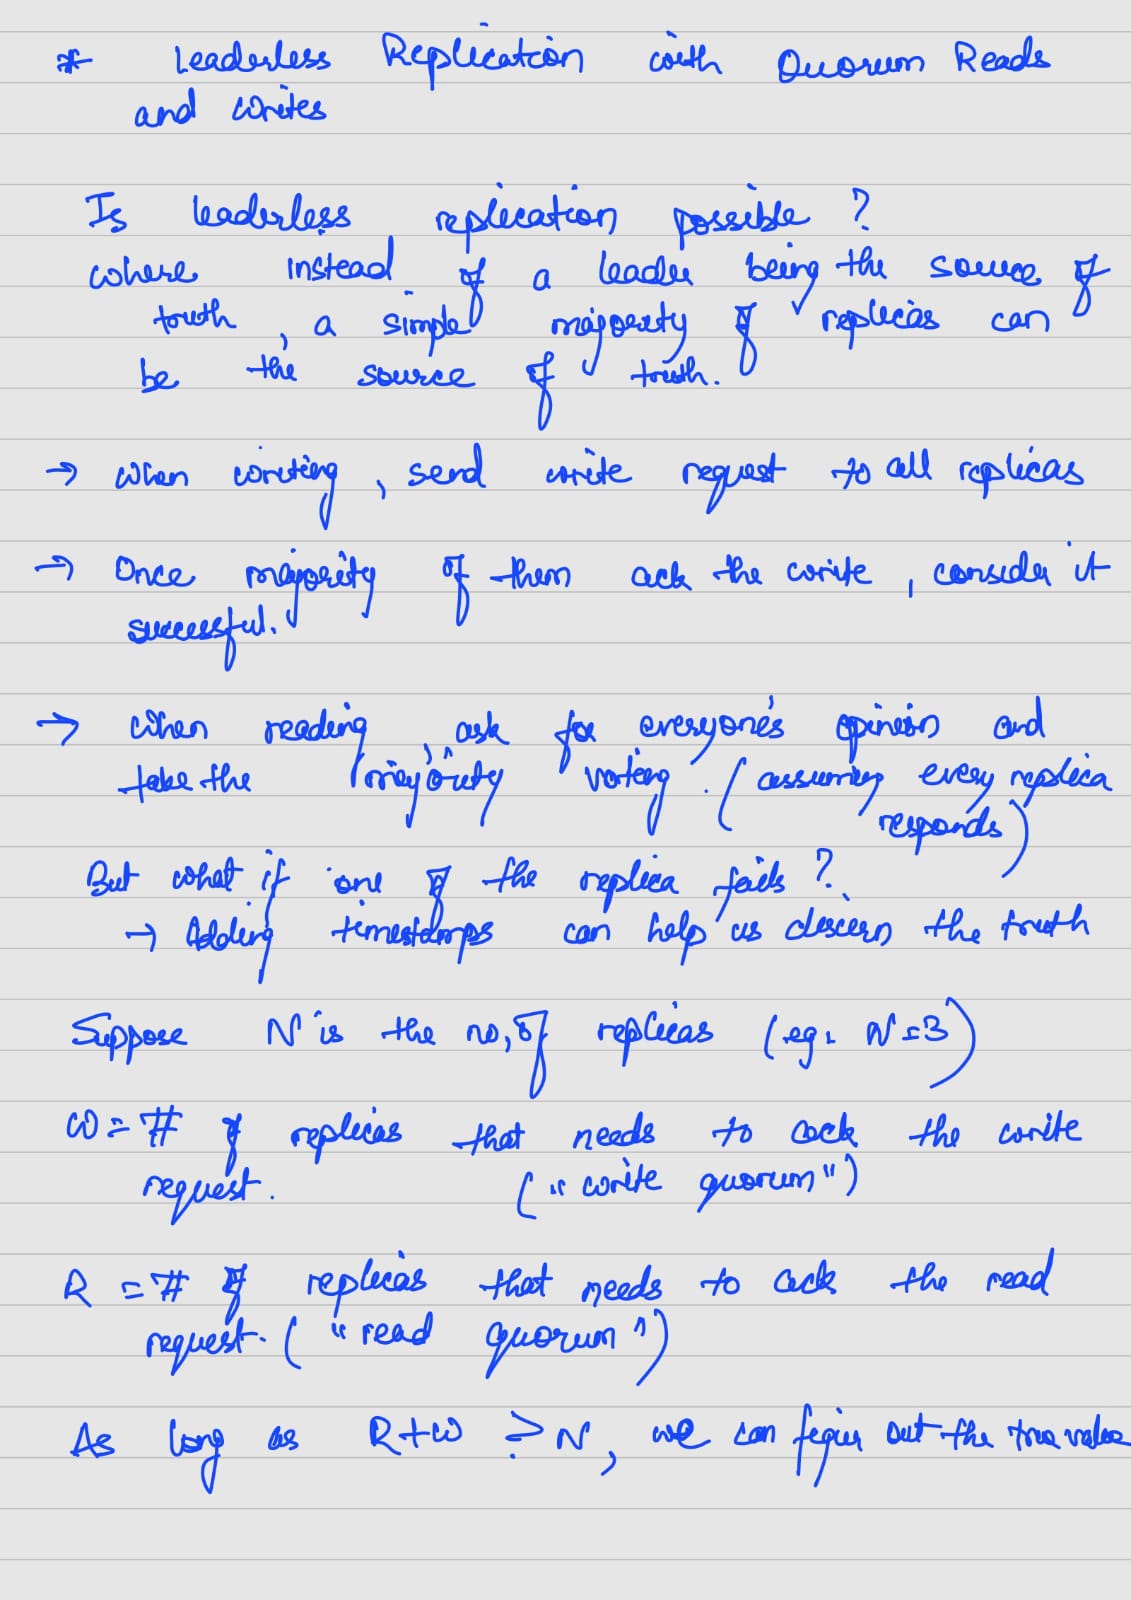 * Leaderless Replication with Quorum Reads
and writes
Is leaderless replication possible ?
where instead of a leader being the source of
truth , a simple majority of replicas can
be the source of truth.
→ When writing , send write request to all replicas
→ Once majority of them ack the write , consider it
successful.
→ When reading , ask for everyone's opinion and
take the majority voting . ( assuming every replica
responds )
But what if one of the replica fails ?
→ Adding timestamps can help us discern the truth
Suppose N is the no, of replicas ( eg. N=3 )
W = # of replicas that needs to ack the write
request. ( "write quorum" )
R = # of replicas that needs to ack the read
request. ( "read quorum" )
As long as R+W > N , we can figure out the true value